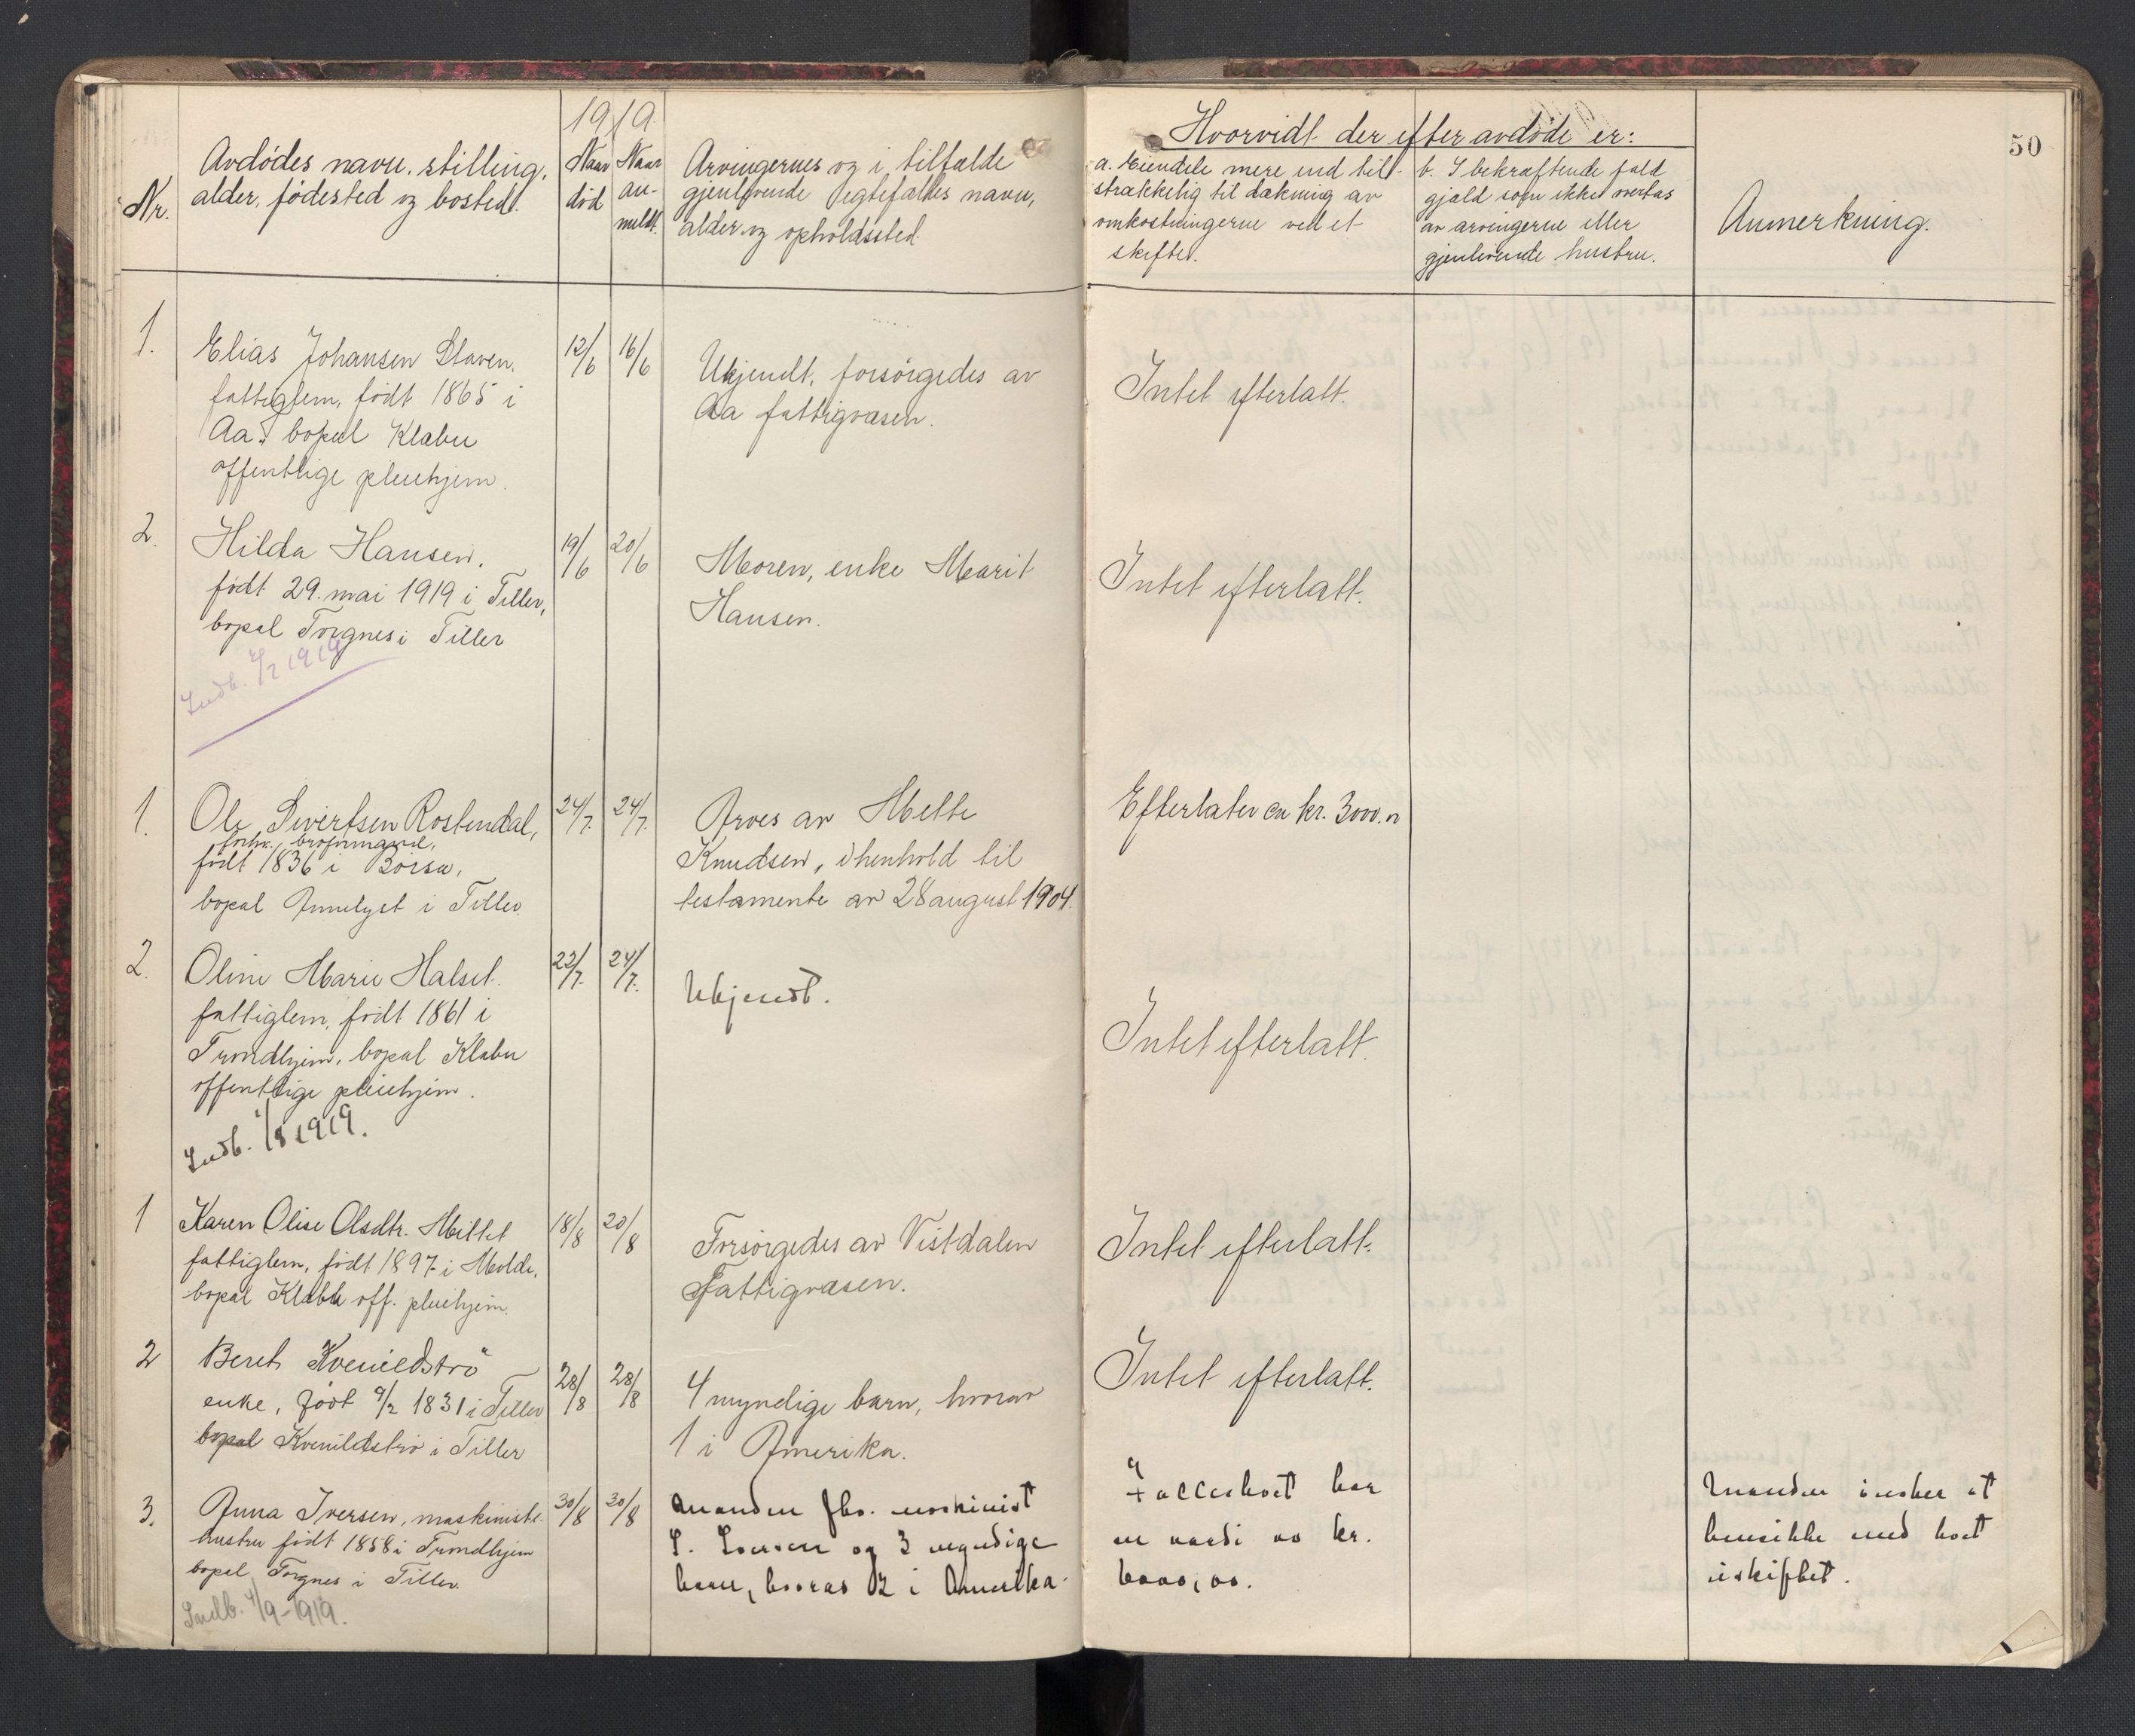 1919
50
Nr.
Avdødes navn, stilling,
alder, fødested og bosted.
Naar
død
Naar
an-
meldt.
Arvingernes og i tilfælde
gjenlevende Ægtefælles navn,
alder og opholdssted.
Hvorvidt der efter avdøde er:
a. Eiendele mere end til-
strækkelig til dækning av
omkostningerne ved et
skifte.
b. I bekræftende fald
gjæld som ikke overtas
av arvingerne eller
gjenlevende hustru.
Anmerkning.
1.
Elias Johansen Staven,
fattiglem, født 1865 i
Aa. bopæl Klæbu
offentlige pleiehjem.
12/6
16/6
Ukjendt, forsørgedes av
Aa fattigvæsen.
Intet efterlatt.
2.
Hilda Hansen,
født 29. mai 1919 i Tiller,
bopæl Torgnes i Tiller
19/6
20/6
Moren, enke Marit
Hansen.
Intet efterlatt.
Indb. /7 1919
1.
Ole Sivertsen Rostendal,
forhv. broformand,
født 1836 i Børsa,
bopæl Annelyst i Tiller
24/7.
24/7.
Arves av Mette
Knudsen, i henhold til
testamente av 28 august 1904.
Efterlater ca kr. 3000.
2.
Oline Marie Halset.
fattiglem, født 1861 i
Trondhjem, bopæl Klæbu
offentlige pleiehjem.
22/7.
24/7.
Ukjendt.
Intet efterlatt.
Indb. 1/8 1919.
1
Karen Olise Olsdtr. Mittet
fattiglem, født 1897 i Molde,
bopæl Klæbu off. pleiehjem.
18/8
20/8
Forsørgedes av Vistdalen
Fattigvæsen.
Intet efterlatt.
2
Beret Kvenildstrø
enke, født 9/2 1831 i Tiller
bopæl Kvenildstrø i Tiller
28/8
28/8
4 myndige barn, hvorav
1 i Amerika.
Intet efterlatt.
3.
Anna Iversen, maskinist-
hustru født 1858 i Trondhjem
bopæl Torgnes i Tiller.
30/8
30/8
Manden fhv. maskinist
I. Iversen og 3 myndige
barn, hvorav 2 i Amerika.
Fællesboet har
en værdi av kr.
6000,00.
Manden ønsker at
hensidde med boet
uskiftet.
Indb. 4/9-1919.